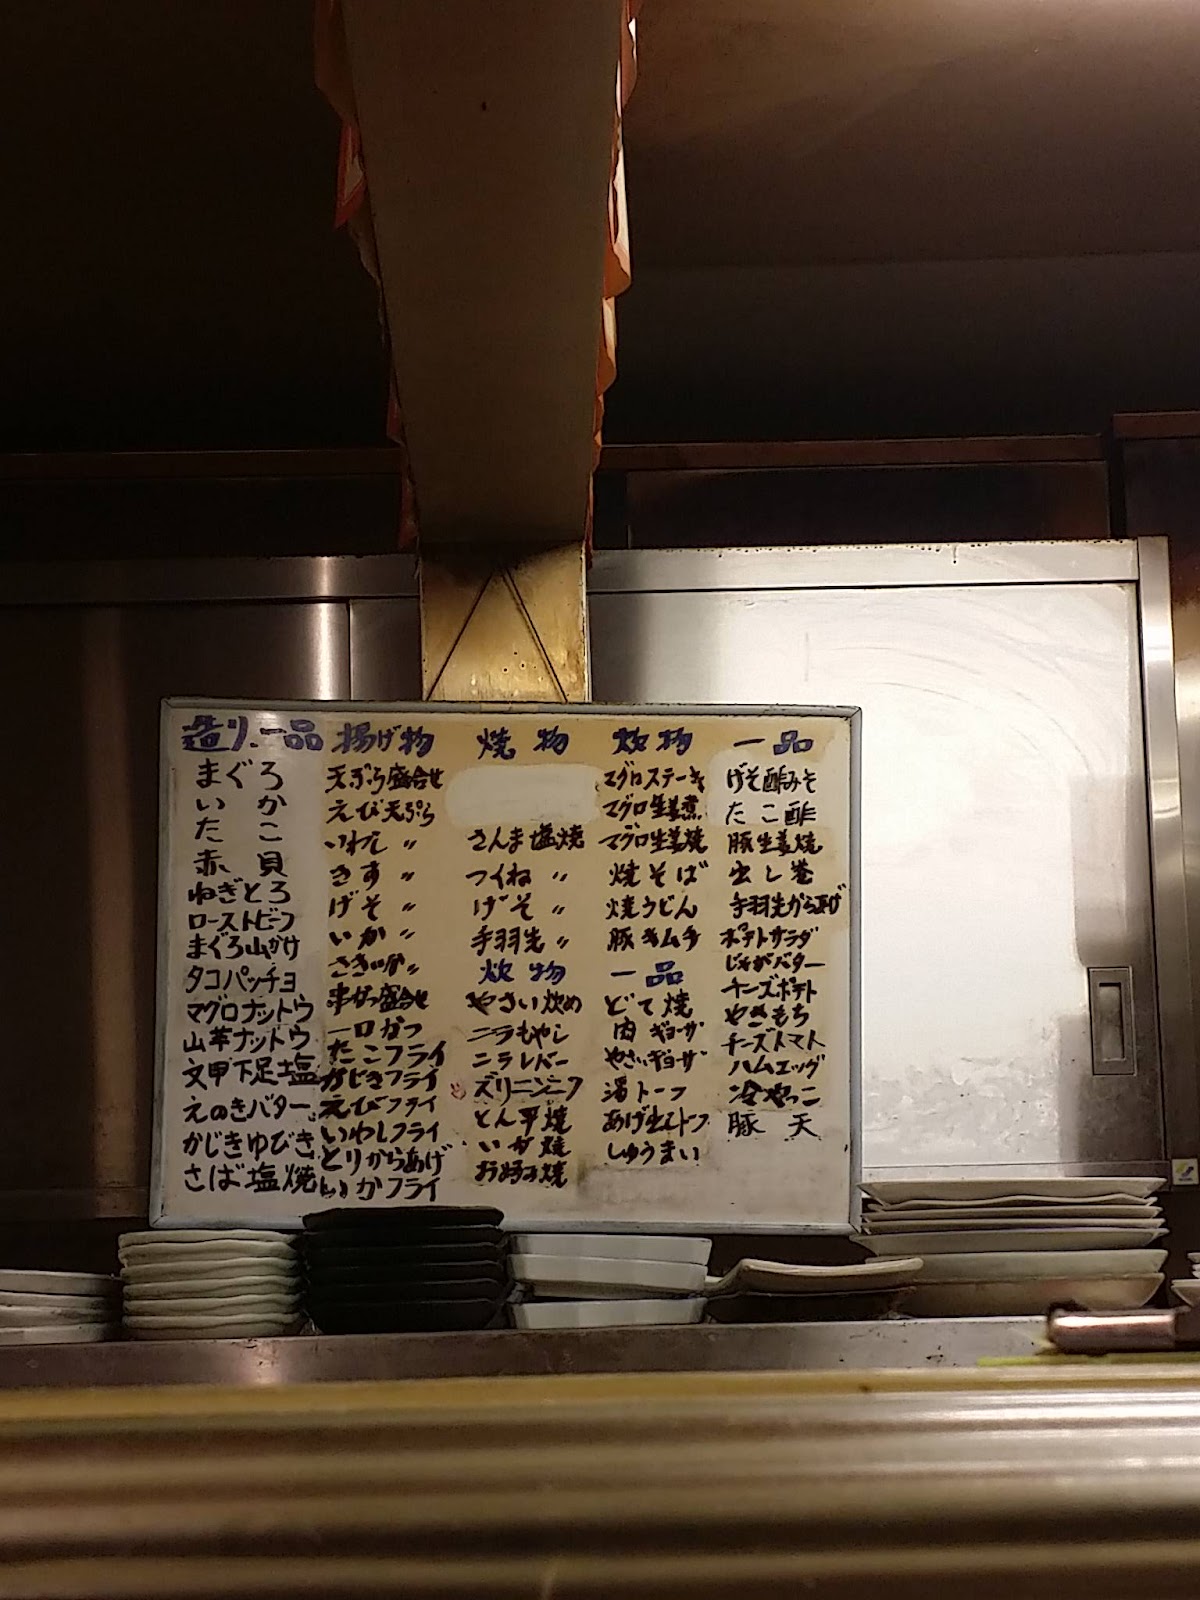 造り、一品
まぐろ
いか
たこ
赤貝
ねぎとろ
ローストビーフ
まぐろ山かけ
タコパッチョ
マグロナットウ
山芋ナットウ
文甲下足塩
えのきバター
かじきゆびき
さば塩焼
揚げ物
天ぷら盛合せ
えび天ぷら
いわし 〃
きす 〃
げそ 〃
いか 〃
〃
串かつ盛合せ
一口かつ
たこフライ
かじきフライ
えびフライ
いわしフライ
とりからあげ
いかフライ
焼物
さんま塩焼
つくね 〃
げそ 〃
手羽先 〃
炊物
やさい炊め
ニラもやし
ニラレバー
ズリニンニク
とん平焼
いか焼
お好み焼
炊物
マグロステーキ
マグロ生姜煮
マグロ生姜焼
焼そば
焼うどん
豚キムチ
一品
どて焼
肉ギョーザ
やさいギョーザ
湯トーフ
あげ出しトーフ
しゅうまい
一品
げそ酢みそ
たこ酢
豚生姜焼
出し巻
手羽先から揚げ
ポテトサラダ
じゃがバター
チーズポテト
やきもち
チーズトマト
ハムエッグ
冷やっこ
豚天